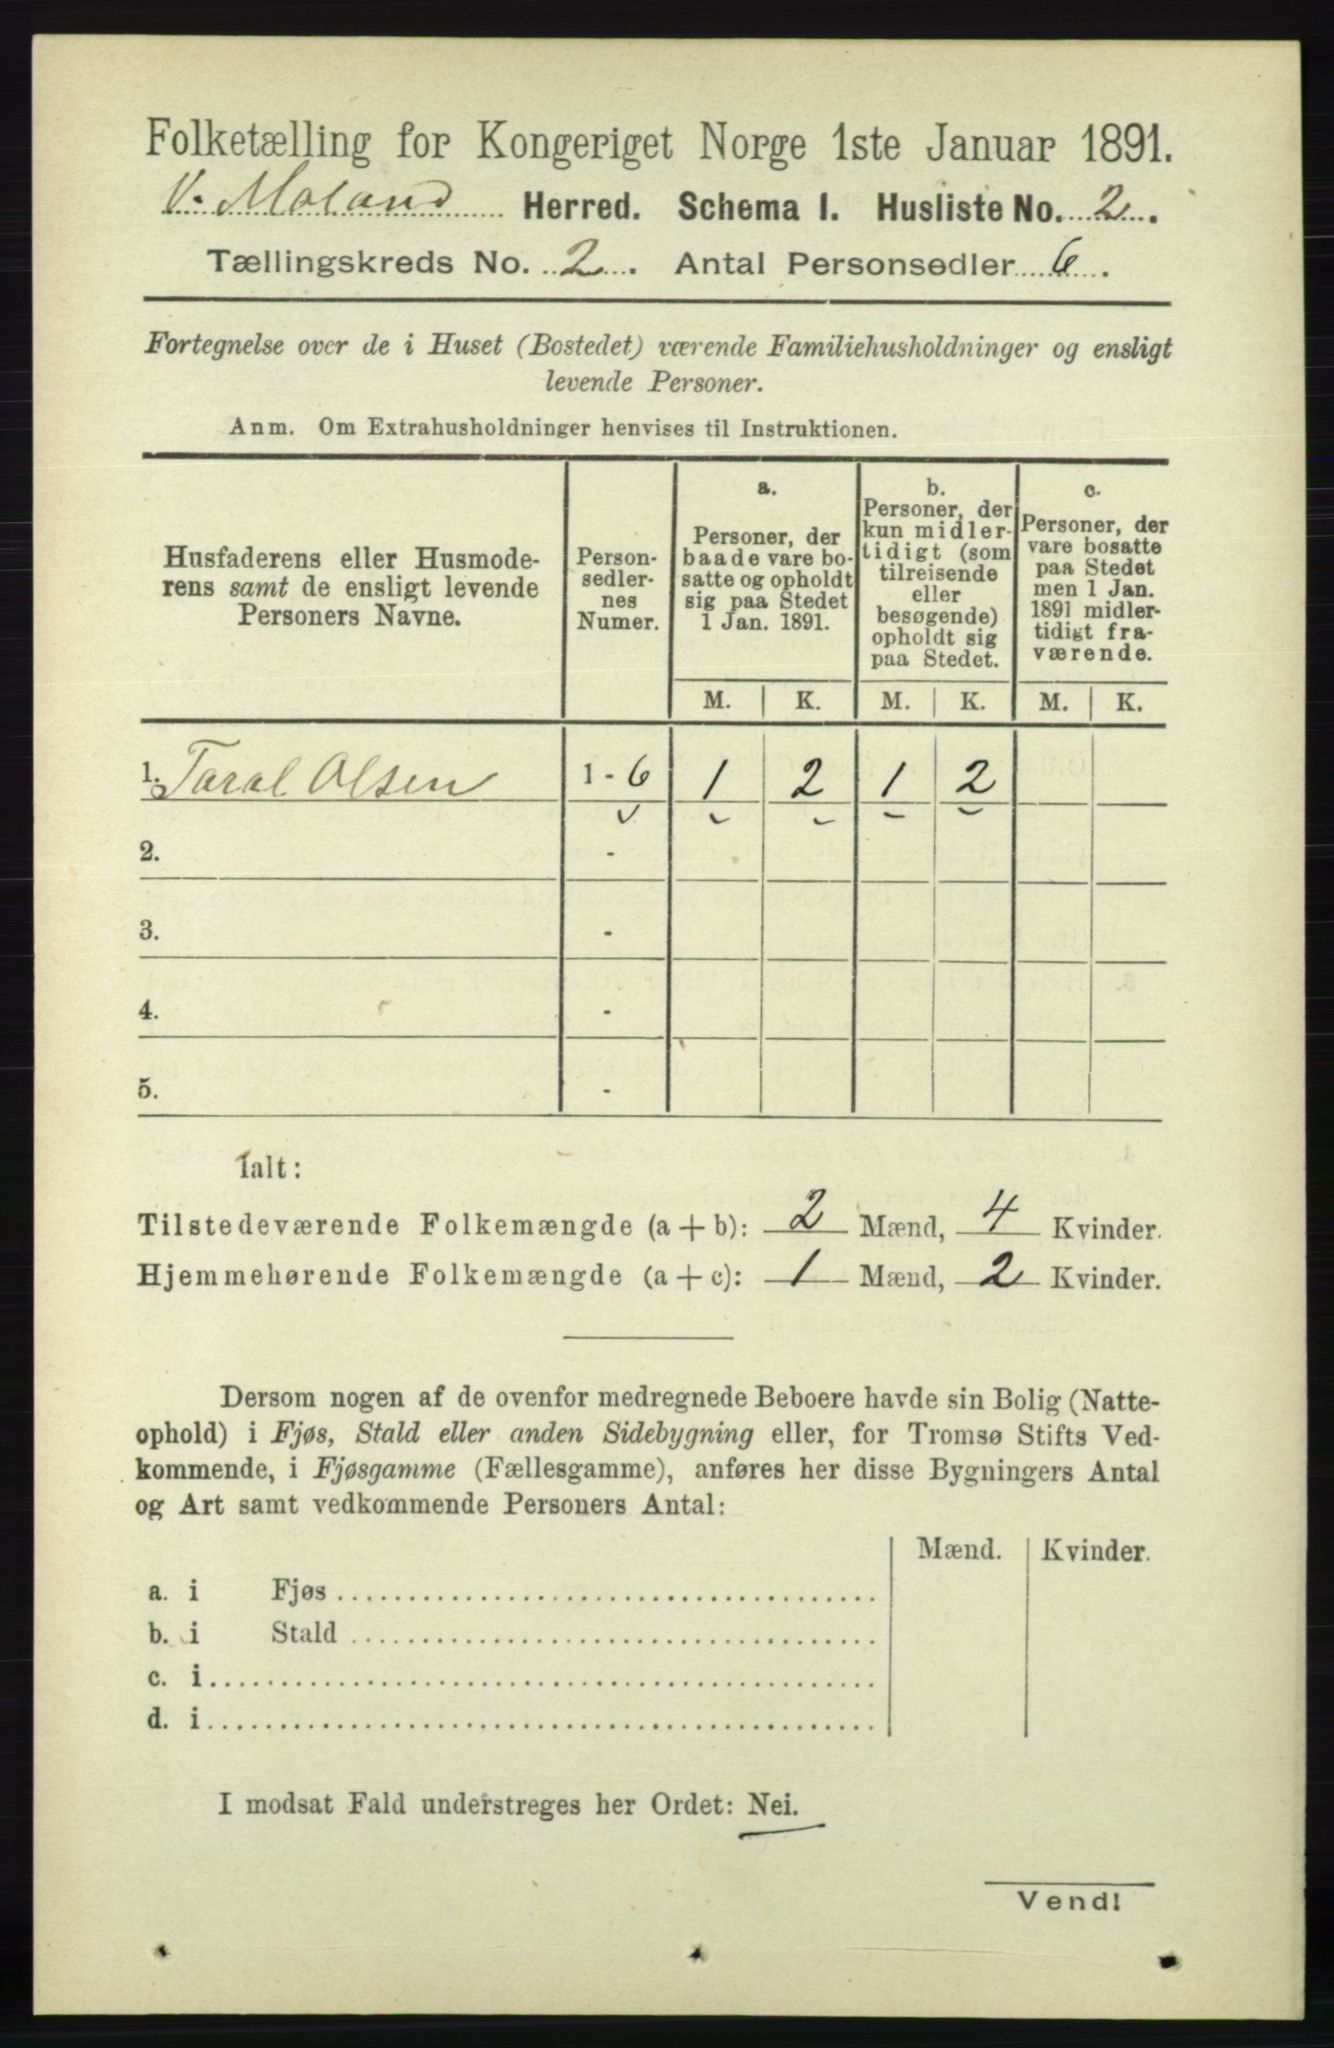 Folketælling for Kongeriget Norge 1ste Januar 1891.
V. Moland Herred. Schema I. Husliste No. 2.
Tællingskreds No. 2. Antal Personsedler 6.
Fortegnelse over de i Huset (Bostedet) værende Familiehusholdninger og ensligt
levende Personer.
Anm. Om Extrahusholdninger henvises til Instruktionen.
Husfaderens eller Husmode-
rens samt de ensligt levende
Personers Navne.
Person-
sedler-
nes
Numer.
a.
Personer, der
baade vare bo-
satte og opholdt
sig paa Stedet
1 Jan. 1891.
b.
Personer, der
kun midler-
tidigt (som
tilreisende
eller
besøgende)
opholdt sig
paa Stedet.
c.
Personer, der
vare bosatte
paa Stedet
men 1 Jan.
1891 midler-
tidigt fra-
værende.
M. K. M. K. M. K.
1. Taral Olsen 1 - 6 1 2 1 2
2. -
3. -
4. -
5. -
Ialt:
Tilstedeværende Folkemængde (a + b): 2 Mænd, 4 Kvinder.
Hjemmehørende Folkemængde (a + c): 1 Mænd, 2 Kvinder.
Dersom nogen af de ovenfor medregnede Beboere havde sin Bolig (Natte-
ophold) i Fjøs, Stald eller anden Sidebygning eller, for Tromsø Stifts Ved-
kommende, i Fjøsgamme (Fællesgamme), anføres her disse Bygningers Antal
og Art samt vedkommende Personers Antal:
Mænd. Kvinder.
a. i Fjøs
b. i Stald
c. i
d. i
I modsat Fald understreges her Ordet: Nei.
Vend!